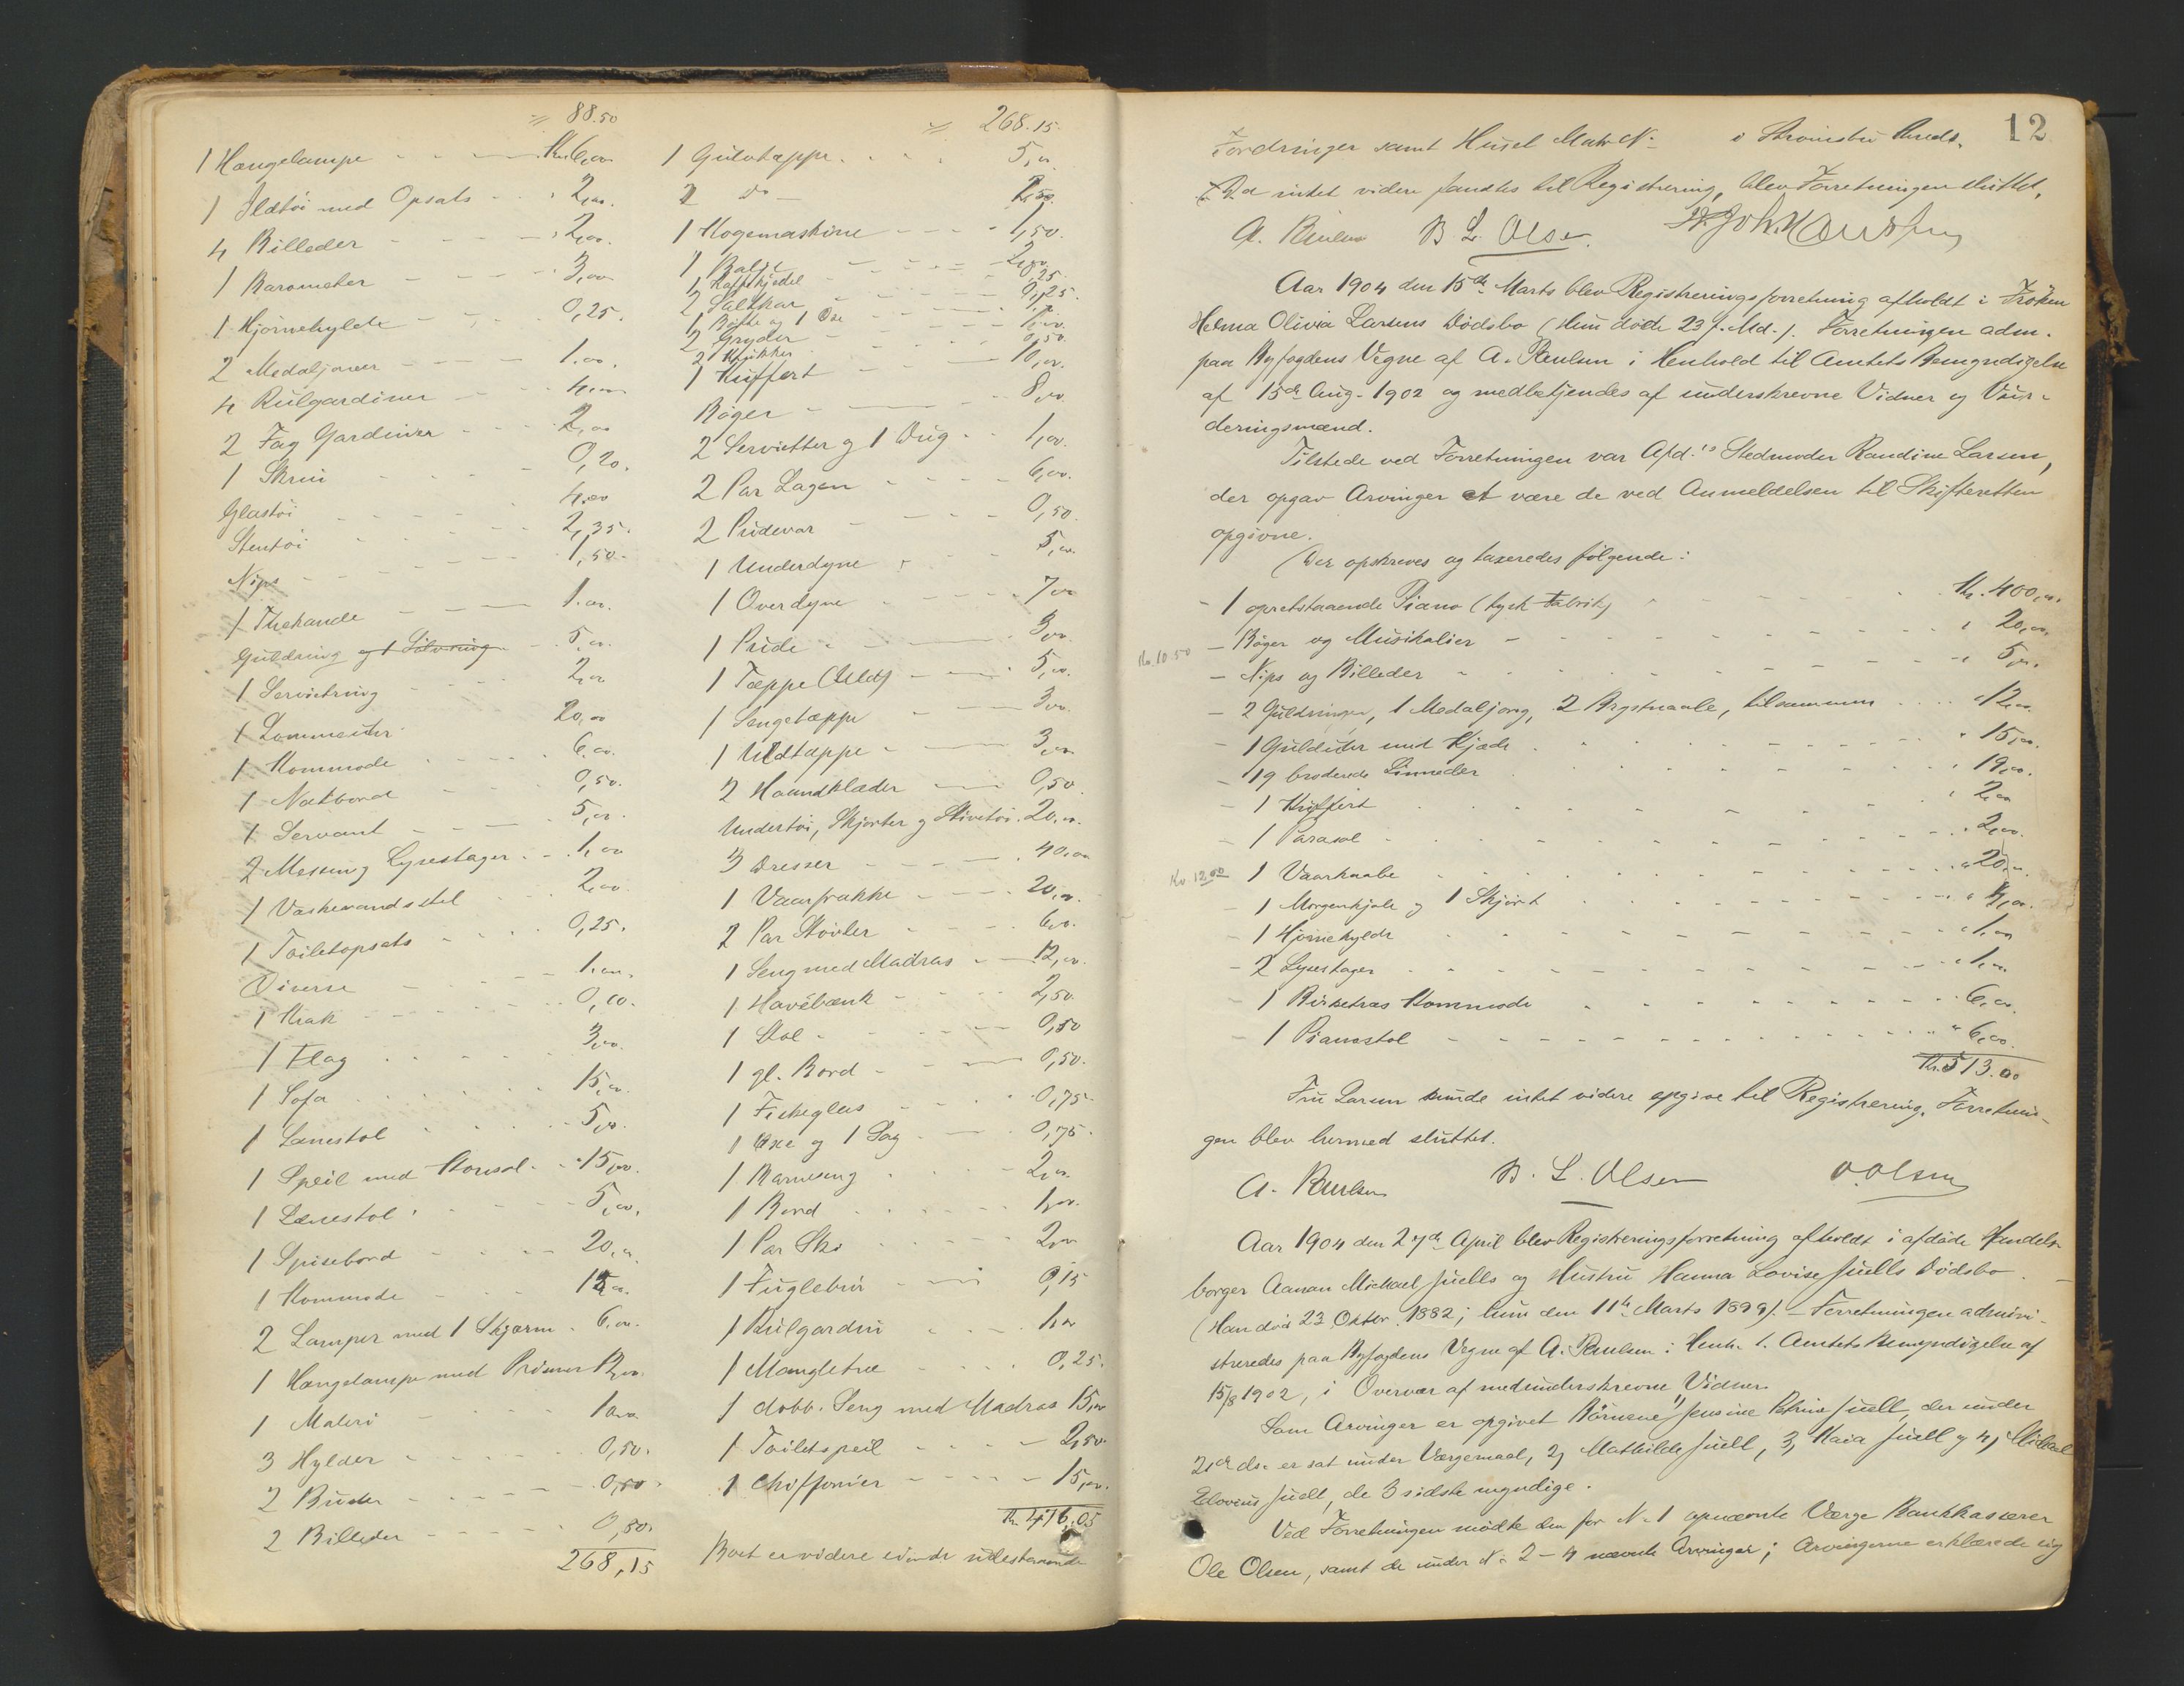 = 88.50
1 Hængelampe - - - Kr. 6,00
1 Ildtøi med Opsats - - 2,00.
4 Billeder - - - - 2,00.
1 Barometer - - - 3,00
1 Hjørnehylde - - - 0,25.
2 Medaljoner - - - 1.00.
4 Rulgardiner - 4,00
2 Fag Gardiner - - - 2,00
1 Skrin - - - 0,20.
Glastøi - - - 4.00
Stentøi - - - 2,35.
Nips - - - 1,50.
1 Thekande - - - 1.00.
Guldring og 1 Sølvring - 5,00.
1 Serviетring - - - 2,00
1 Lommeuhr 20,00
1 Kommode - - - 6.00.
1 Natbord - - - 0,50.
1 Servant - - - 5,00.
2 Messing Lysestager - - 1,00
1 Vaskevandsstel - - 2,00
1 Toiletopsats - - - 0,25.
Diverse - - - 1.00.
1 Krak - - - 0,60.
1 Flag - - - 3,00.
1 Sofa - - - 15,00.
1 Lænestol - - - 5,00.
1 Speil med Konsol - - 15,00.
1 Lænestol - - - 5,00.
1 Spisebord - - - 20,00
1 Kommode - - - 15,00.
2 Lamper med 1 Skjærm - 6,00.
1 Hængelampe med Prismer
1 Maleri - - -
3 Hylder - - - 0,50.
2 Buster - - - 0,50.
2 Billeder - - - 0,80.
268,15
= 268.15.
1 Gulvtæppe - - - 5,00
2 do - 2,50.
1 Kogemaskine - - - 1,50.
1 Balje - - - 2,00.
1 Kaffekjedel - - - 0,25.
2 Saltkar - - - 0,25.
1 Bøtte og 1 Øse
2 Gryder
2 Krukker - - - 0,50.
1 Kuffert - - 10,00.
Bøger - - - 8,00
2 Servietter og 1 Dug - - 1,00.
2 Par Lagen - - - 6,00.
2 Pudevar - - - 0,50.
1 Underdyne - - - 5,00.
1 Overdyne - - - 7,00
1 Pude - - - 3,00.
1 Tæppe (Uldt) - - 5,00.
1 Sengetæppe - - 3,00.
1 Uldtæppe - - - 3,00
2 Haandklæder - - 0,50.
Undertøi, Skjorter og Stivetøi. 20,00.
3 Dresser - - - 40,00
1 Vaarfrakke - - - 20,00.
2 Par Støvler - - - 6,00.
1 Seng med Madras - - 12,00.
1 Havebænk - - - 2,50.
1 Stol - - - 0,50
1 gl. Bord - - - 0,50.
1 Fiskeglas - - - 0,75
1 Øxe og 1 Sag - - 0,75.
1 Barneseng - - - 2,00.
1 Bord - - - 1,00.
1 Par Ski - - - 2,00
1 Fuglebur - - - 0,15
1 Rulgardin - - - 1,00
1 Mangletræ - - - 0,25.
1 dobb. Seng med Madras 15,00
1 Toiletspeil - - - 2,50.
1 Chiffonier - - - 15,00.
Kr. 416.05
Boet er videre eiende udestaaende
12
Fordringer samt Huset Matr. N. i Strømsbu Kreds.
Da intet videre fandtes til Registrering, blev Forretningen sluttet.
A. Paulsen B. L. Olsen.
Aar 1904 den 15de Marts blev Registreringsforretning afholdt i Frøken
Helma Olivia Larsens Dødsbo (Hun døde 23 f. Md.). Forretningen adm.
paa Byfogdens Vegne af A. Paulsen i Henhold til Amtets Bemyndigelse
af 15de Aug. 1902 og medbetjendes af underskrevne Vidner og Vur-
deringsmænd.
Tilstede ved Forretningen var Afd.'s Stedmoder Randine Larsen,
der opgav Arvinger at være de ved Anmeldelsen til Skifteretten
opgivne.
Der opskreves og taxeredes følgende:
- 1 opretstaaende Piano (tysk Fabrik) - - - Kr. 400,00.
Kr. 10.50 - Bøger og Musikalier - - - " 20,00.
- Nips og Billeder - - - " 5,00.
- 2 Guldringe, 1 Medaljong, 2 Brystnaale, tilsammen - - - " 12,00
- 1 Guldur med Kjæde - - - " 15,00.
- 19 broderede Linneder - - - " 19,00.
- 1 Kuffert - - - " 2,00
- 1 Parasol - - - " 2,00.
Kr. 12.00 1 Vaarkaabe - - - " 20,00.
- 1 Morgenkjole og 1 Skjørt - - - " 4,00.
- 1 Hjørnehylde - - - " 1,00
- 2 Lysestager - - - " 1,00.
- 1 Birketræs Kommode - - - 6,00.
- 1 Pianostol - - - " 6,00.
Kr. 513.00
Fru Larsen kunde intet videre opgive til Registrering. Forretnin-
gen blev hermed sluttet.
A. Paulsen B. L. Olsen O. Olsen
Aar 1904 den 27de April blev Registreringsforretning afholdt i afdøde Handels-
borger Aanon Michael Juells og Hustru Hanna Lovise Juells Dødsbo. -
(Han død 23 Oktbr. 1882; hun den 11te Marts 1899). - Forretningen admini-
streredes paa Byfogdens Vegne af A. Paulsen i Henh. t. Amtets Bemyndigelse af
15/8 1902, i Overvær af medunderskrevne Vidner.
Som Arvinger er opgivet Børnene 1) Jensine Petrine Juell, der under
21de ds. er sat under Værgemaal, 2) Mathilde Juell, 3, Kaia Juell og 4) Michael
Edovius Juell, de 3 sidste myndige.
Ved Forretningen mødte den for N. 1 opnævnte Værge Bankkasserer
Ole Olsen, samt de under N. 2 - 4 nævnte Arvinger; Arvingerne erklærede sig